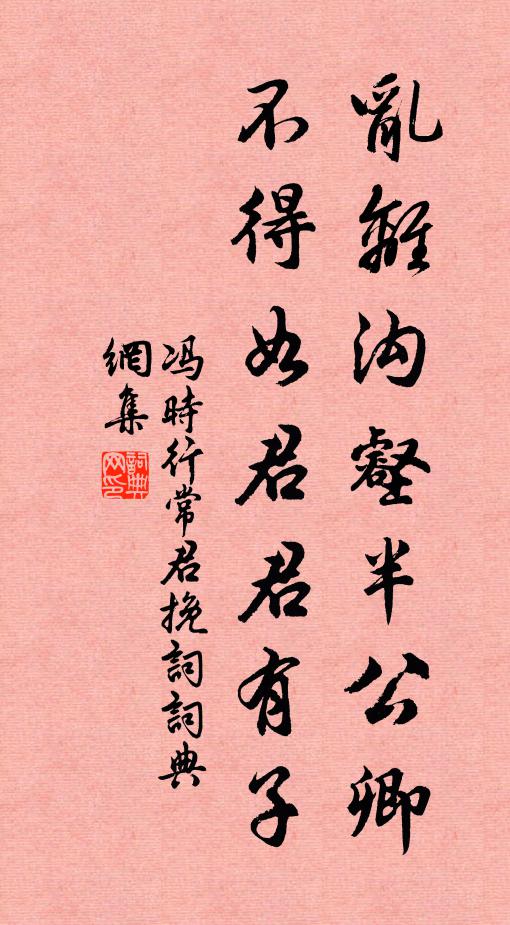 亂離沟壑半公卿
不得如君君有子
冯時行常君挽詞詞典
網集
詞典网印